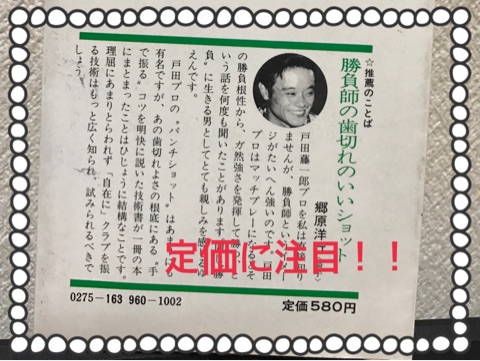 ☆推薦のことば
勝負師の歯切れのいいショット
郷原洋
戸田藤一郎プロを私は
ませんが、勝負師というイメー
ジがたいへん強いのです。戸田
プロはマッチプレーになるとそ
の勝負根性から、ガ然強さを発揮して勝
いう話を何度も聞いたことがあります
負〟に生きる男としてとても親しみを感
えんです。
戸田プロの〝パンチショット〟はあま
有名ですが、あの歯切れよさの根底にある〝手
で振る〟コツを明快に説いた技術書が一冊の本
にまとまったことはひじょうに結構なことです。
理屈にあまりとらわれず〝自在に〟クラブを振
る技術はもっと広く知られ、試みられるべきで
しょう。
定価に注目！！
0275-163 960-1002
定価580円